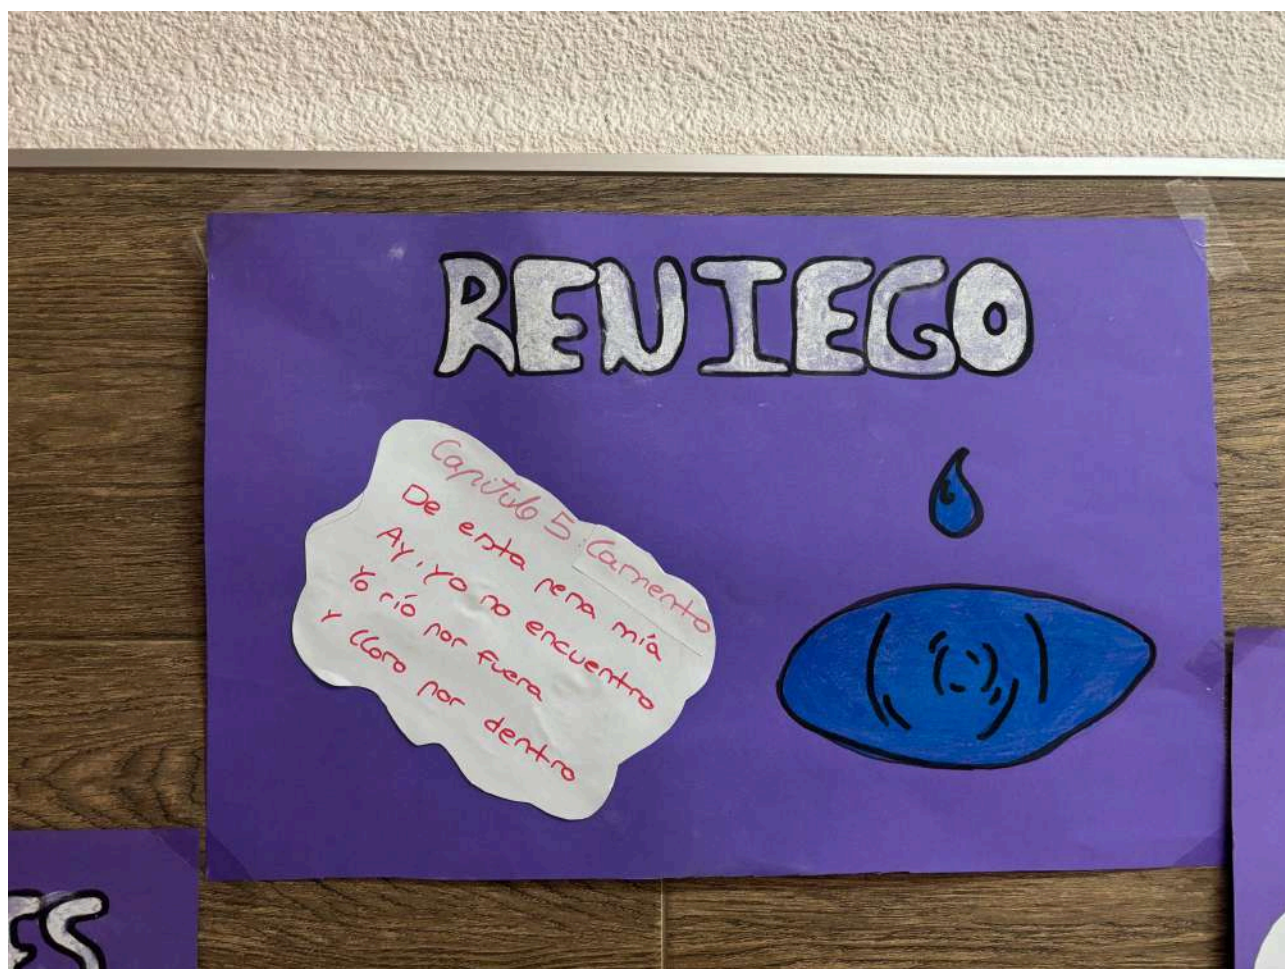 RENIEGO
Capitulo 5: Lamento
De esta pena mía
Ay, yo no encuentro
Yo río por fuera
Y lloro por dentro
ES